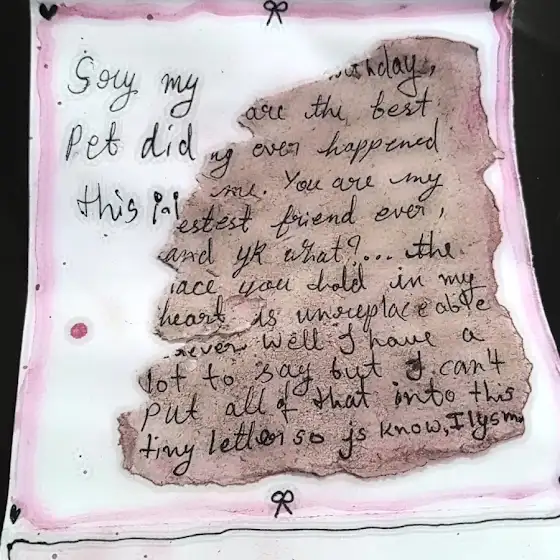 Sory my
Pet did
this
thday,
are the best
ng ever happened
me. You are my
estest friend ever,
and yk what?... the
lace you hold in my
heart is unreplaceable
never. Well I have a
lot to say but I can't
put all of that into this
tiny letter so js know, Ilysm